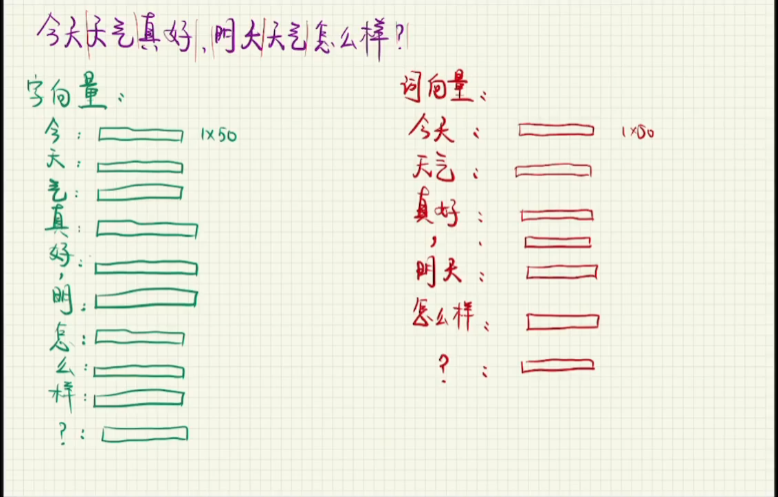 今天|天气|真好|,|明天|天气|怎么样?
字向量:
今: 1x50
天:
气:
真:
好:
,
明:
怎:
么:
样:
?:
词向量:
今天: 1x50
天气:
真好:
, .
明天:
怎么样:
? :